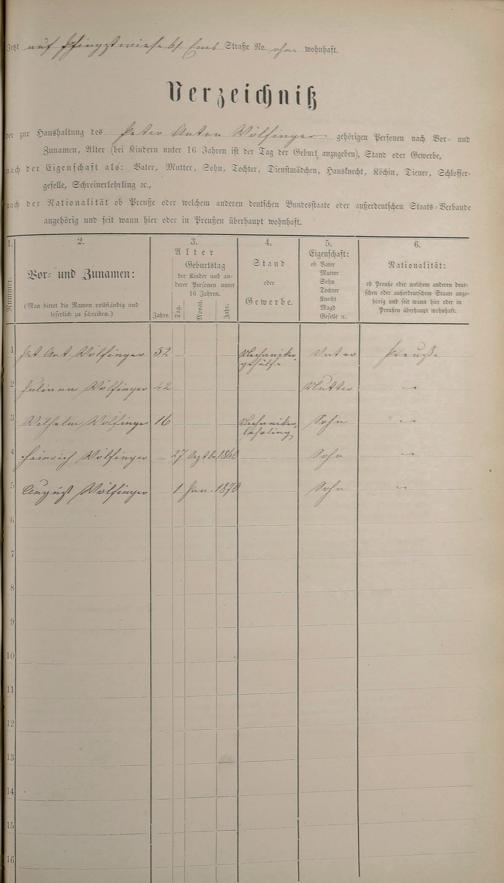 Jetzt auf Pfingstweide bei Ems Straße No. ohne wohnhaft.
Verzeichniß
der zur Haushaltung des Peter Anton Wölfinger gehörigen Personen nach Vor- und
Zunamen, Alter (bei Kindern unter 16 Jahren ist der Tag der Geburt anzugeben), Stand oder Gewerbe,
nach der Eigenschaft als: Vater, Mutter, Sohn, Tochter, Dienstmädchen, Hausknecht, Köchin, Diener, Schlosser-
geselle, Schreinerlehrling ꝛc.,
nach der Nationalität ob Preuße oder welchem anderen deutschen Bundesstaate oder außerdeutschen Staats-Verbande
angehörig und seit wann hier oder in Preußen überhaupt wohnhaft.
1. 2. 3. 4. 5. 6.
Nummer.
Vor- und Zunamen:
(Man bittet die Namen vollständig und
leserlich zu schreiben.)
Alter
Geburtstag
der Kinder und an-
derer Personen unter
16 Jahren.
Jahre. Tag. Monat. Jahr.
Stand
oder
Gewerbe.
Eigenschaft:
ob Vater
Mutter
Sohn
Tochter
Knecht
Magd
Geselle ꝛc.
Nationalität:
ob Preuße oder welchem anderen deut-
schen oder außerdeutschen Staat ange-
hörig und seit wann hier oder in
Preußen überhaupt wohnhaft.
1 Pet. Ant. Wölfinger 52 Mechaniker- Vater Preuße
gehülfe
2 Wölfinger 42 Mutter "
3 Wilhelm Wölfinger 16 Mechaniker- Sohn "
lehrling
4 Heinrich Wölfinger 27 Sohn "
5 August Wölfinger 1 Jan. 1870 Sohn "
6
7
8
9
10
11
12
13
14
15
16